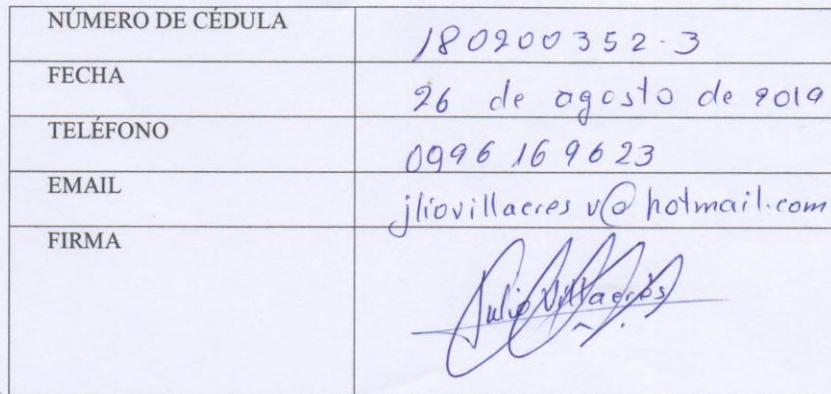 NÚMERO DE CÉDULA 180200352-3
FECHA 26 de agosto de 2019
TELÉFONO 0996169623
EMAIL jliovillacres v@hotmail.com
FIRMA Julio Villacrés